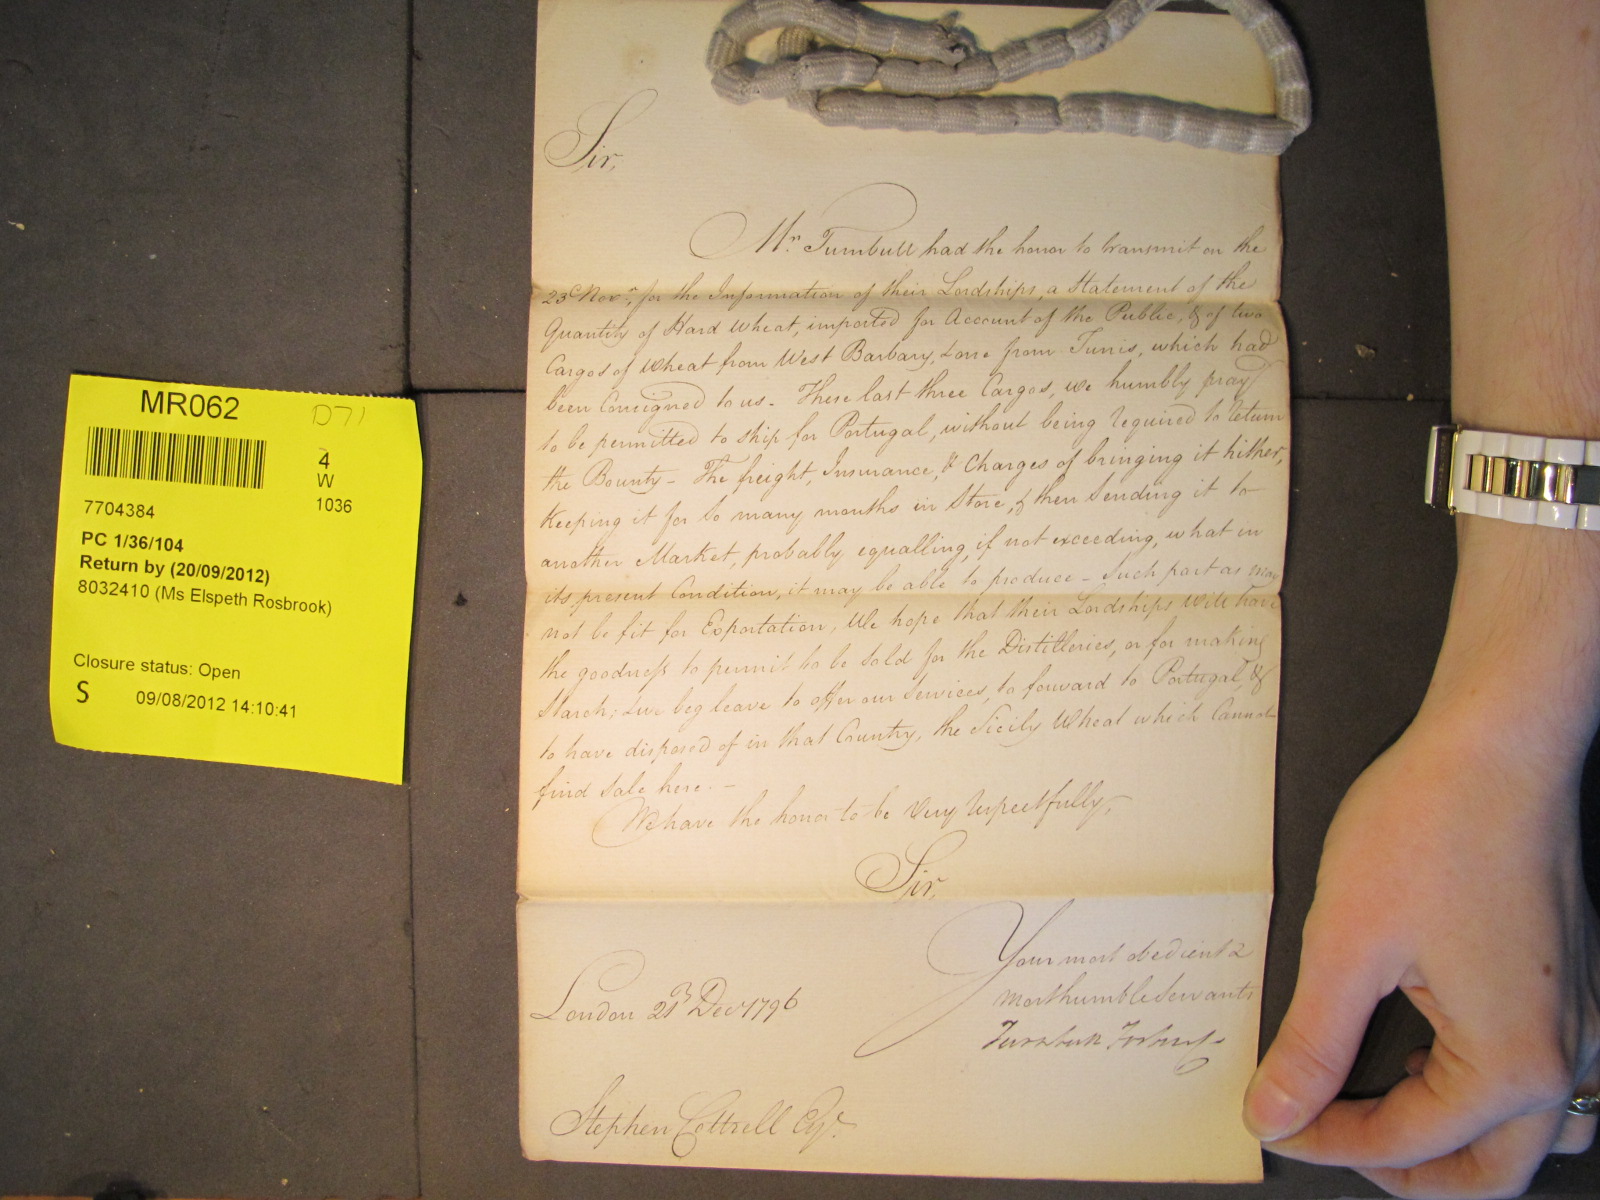 MR062
D71
4
W
1036
7704384
PC 1/36/104
Return by (20/09/2012)
8032410 (Ms Elspeth Rosbrook)
Closure status: Open
S 09/08/2012 14:10:41
Sir,
Mr. Turnbull had the honor to transmit on the
23d Novr., for the Information of their Lordships, a Statement of the
Quantity of Hard Wheat, imported for Account of the Public, & of two
Cargos of Wheat from West Barbary, & one from Tunis, which had
been Consigned to us - These last three Cargos, we humbly pray
to be permitted to ship for Portugal, without being required to return
the Bounty - The freight, Insurance, & Charges of bringing it hither,
Keeping it for so many months in Store, & then sending it to
another Market, probably equalling, if not exceeding, what in
its present Condition, it may be able to produce - Such part as may
not be fit for Exportation, We hope that their Lordships will have
the goodness to permit to be sold for the Distilleries, or for making
Starch; & we beg leave to offer our Services, to forward to Portugal, &
to have disposed of in that Country, the Sicily Wheat which Cannot
find Sale here. -
We have the honor to be very respectfully,
Sir,
Your most obedient &
most humble Servants
Turnbull Forbes
London Decr 1796
Stephen Cottrell Esqr.